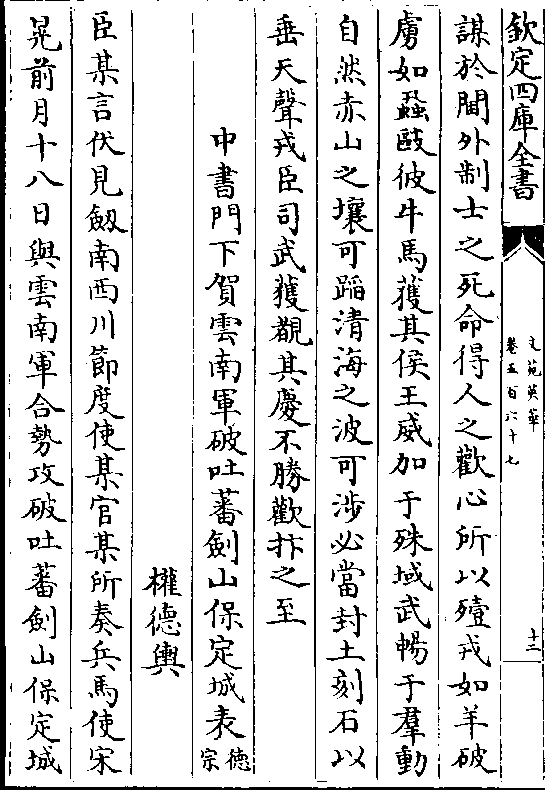 欽定四庫全書
文苑英華
卷五百六十七
十三
謀於閫外制士之死命得人之歡心所以殪戎如羊破
虜如蝨敺彼牛馬獲其侯王威加于殊域武暢于羣動
自然赤山之壤可蹈清海之波可涉必當封土刻石以
垂天聲戎臣司武獲觀其慶不勝歡抃之至
中書門下賀雲南軍破吐蕃劍山保定城表德宗
權德輿
臣某言伏見劔南西川節度使某官某所奏兵馬使宋
晃前月十八日與雲南軍合勢攻破吐蕃劍山保定城